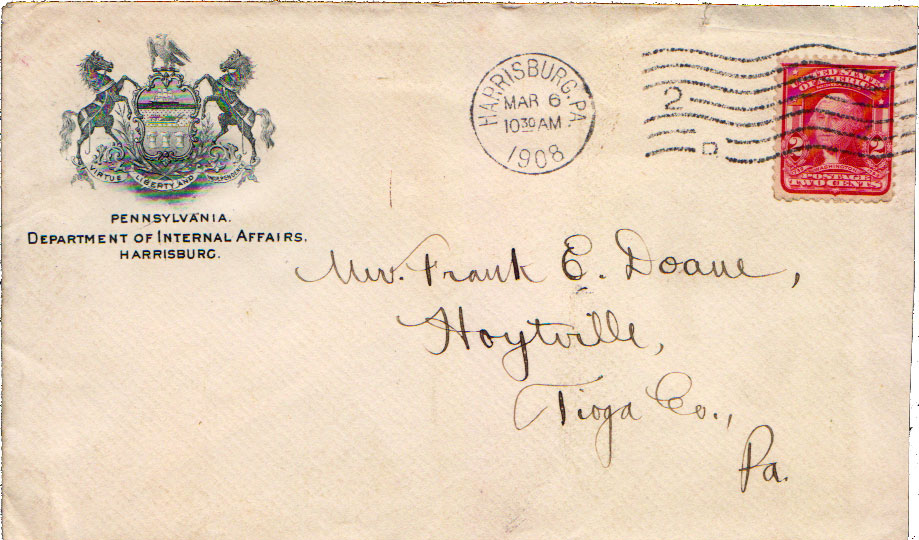 VIRTUE LIBERTY AND INDEPENDENCE
PENNSYLVANIA.
DEPARTMENT OF INTERNAL AFFAIRS.
HARRISBURG.
HARRISBURG, PA.
MAR 6
10 30 AM
1908
2
D
UNITED STATES
2 2
POSTAGE
TWO CENTS
Mr. Frank E. Doane,
Hoytville,
Tioga Co.,
Pa.